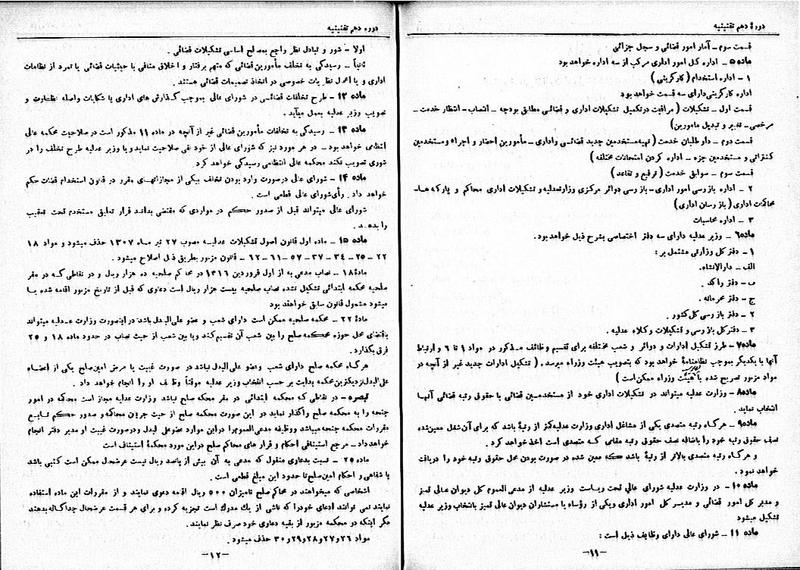 دورهٔ دهم تقنینیه
قسمت سوم - آمار امور قضائی و سجل جزائی
ماده ۵ - اداره کل امور اداری مرکب از سه اداره خواهد بود
۱ - اداره استخدام ( کارگزینی )
اداره کارگزینی دارای سه قسمت خواهد بود
قسمت اول - تشکیلات ( مراقبت در تکمیل تشکیلات اداری و قضائی مطابق بودجه - انتصاب - انتظار خدمت -
مرخصی - تغییر و تبدیل مأمورین )
قسمت دوم - داوطلبان خدمت ( تهیه مستخدمین جدید قضائی و اداری - مأمورین احضار و اجراء و مستخدمین
کنتراتی و مستخدمین جزء - اداره کردن امتحانات مختلفه )
قسمت سوم - سوابق خدمت ( ترفیع و تقاعد )
۲ - اداره بازرسی امور اداری - بازرسی دوائر مرکزی وزارت عدلیه و تشکیلات اداری محاکم و پارکه ها -
محاکمات اداری ( بازرسان اداری )
۳ - اداره محاسبات
ماده ۶ - وزیر عدلیه دارای سه دفتر اختصاصی بشرح ذیل خواهد بود .
۱ - دفتر کل وزارتی مشتمل بر :
الف - دارالانشاء .
ب - دفتر راکد .
ج - دفتر محرمانه .
۲ - دفتر بازرسی کل کشور .
۳ - دفتر کل بازرسی و تشکیلات وکلاء عدلیه .
ماده ۷ - طرز تشکیل ادارات و دوائر و شعب مختلفه برای تقسیم وظائف مذکور در مواد ۱ تا ۶ و ارتباط
آنها با یکدیگر بموجب نظامنامهٔ خواهد بود که بتصویب هیئت وزراء میرسد . ( تشکیل ادارات جدید غیر از آنچه در
مواد مزبور تصریح شده با هیئت وزراء ممکن است )
ماده ۸ - وزارت عدلیه میتواند در تشکیلات اداری خود از مستخدمین قضائی با حقوق رتبه قضائی آنها
انتخاب نماید .
ماده ۹ - هرگاه رتبه متصدی یکی از مشاغل اداری وزارت عدلیه کمتر از رتبهٔ باشد که برای آن شغل معین شده
نصف حقوق رتبه خود را باضافه نصف حقوق رتبه مقامی که متصدی است اخذ خواهد کرد .
و هرگاه رتبه متصدی بالاتر از رتبهٔ باشد که معین شده در صورت بودن محل حقوق رتبه خود را دریافت
خواهد نمود .
ماده ۱۰ - در وزارت عدلیه شورای عالی تحت ریاست وزیر عدلیه از مدعی العموم کل دیوان عالی تمیز
و مدیر کل امور قضائی و مدیر کل امور اداری و یکی از رؤساء یا مستشاران دیوان عالی تمیز بانتخاب وزیر عدلیه
تشکیل میشود
ماده ۱۱ - شورای عالی دارای وظایف ذیل است :
-۱۱-
دوره دهم تقنینیه
اولا - شور و تبادل نظر راجع بمصالح اساسی تشکیلات قضائی .
ثانیاً - رسیدگی به تخلف مأمورین قضائی که متهم برفتار و اخلاق منافی با حیثیات قضائی یا تمرد از نظامات
اداری و یا اعمال نظریات خصوصی در اتخاذ تصمیمات قضائی هستند .
ماده ۱۲ - طرح تخلفات قضائی در شورای عالی بموجب گذارش های اداری یا شکایات واصله نظارت و
تصویب وزیر عدلیه بعمل میآید .
ماده ۱۳ - رسیدگی به تخلفات مأمورین قضائی غیر از آنچه در ماده ۱۱ مذکور است در صلاحیت محکمه عالی
انتظامی خواهد بود - در هر مورد نیز که شورای عالی از خود نفی صلاحیت نماید و یا وزیر عدلیه طرح تخلف را در
شوری تصویب نکند محکمه عالی انتظامی رسیدگی خواهد کرد
ماده ۱۴ - شورای عالی در صورت وارد بودن تخلف بیکی از مجازاتهای مقرر در قانون استخدام قضات حکم
خواهد داد . رأی شورای عالی قطعی است .
شورای عالی میتواند قبل از صدور حکم در مواردی که مقتضی بداند قرار تعلیق مستخدم تحت تعقیب
را بدهد .
ماده ۱۵ - ماده اول قانون اصول تشکیلات عدلیه مصوب ۲۷ تیر ماه ۱۳۰۷ حذف میشود و مواد ۱۸
۲۲ - ۲۵ - ۳۴ - ۳۷ - ۵۷ - ۱۱ - ۱۲ - قانون مزبور بطریق ذیل اصلاح میشود .
ماده ۱۸ - نصاب مدعی به از اول فروردین ۱۳۱۶ در محاکم صلحیه ده هزار ریال و در نقاطی که در مقر
صلحیه محکمه ابتدائی تشکیل نشده نصاب صلحیه بیست هزار ریال است دعاوی که قبل از تاریخ مزبور اقامه شده باشد
میشود مشمول قانون سابق خواهند بود
ماده ۲۲ - محکمه صلحیه ممکن است دارای شعب و عضو علی البدل باشد : در اینصورت وزارت عدلیه میتواند
باقتضای محل حوزه محکمه صلح را بین شعب آن تقسیم کند و یا بین شعب از حیث نصاب در حدود ماده ۱۸ و ۲۵
فرق بگذارد .
هرگاه محکمه صلح دارای شعب و عضو علی البدل نباشد در صورت غیبت یا مرض امین صلح یکی از اعضاء
علی البدل نزدیکترین محکمه بدایت بر حسب انتخاب وزیر عدلیه موقتاً وظایف او را انجام خواهد داد .
تبصره - در نقاطی که محکمه ابتدائی در مقر محکمه صلح نباشد وزارت عدلیه مجاز است محکمه در امور
جنحه را به محکمه صلح واگذار نماید در این صورت محکمه صلح از حیث جریان محاکمه و صدور حکم تابع
مقررات محکمه جنحه میباشد و وظیفه مدعی العموم را در این موارد عضو علی البدل و در صورت غیبت او مدیر دفتر انجام
خواهد داد - مرجع استینافی احکام و قرار های محاکم صلح در این مورد محکمهٔ استیناف است
ماده ۲۵ - نسبت بدعاوی منقول که مدعی به آن بیش از پانصد ریال نیست عرضحال ممکن است کتبی باشد
یا شفاهی و احکام امین صلح تا حدود این مبلغ قطعی است .
اشخاصی که میخواهند در محاکم صلح تا میزان ۵۰۰ ریال اقامه دعوی نمایند و از مقررات این ماده استفاده
نمایند نمی توانند ادعای خود را که ناشی از یک مدرک است تجزیه کرده و برای هر قسمت عرضحال جداگانه بدهند
مگر اینکه در محکمه مزبور از بقیه دعاوی خود صرف نظر نمایند .
مواد ۲۶ و ۲۷ و ۲۸ و ۲۹ و ۳۰ حذف میشود .
-۱۲-